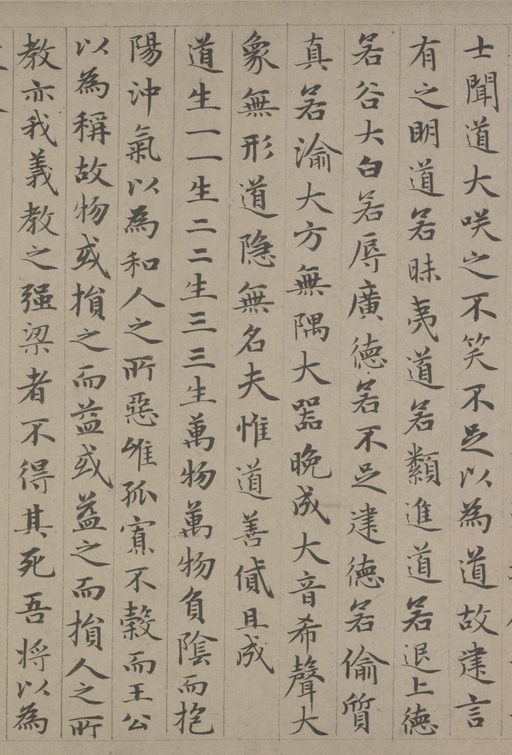 士聞道大咲之不笑不足以為道故建言
有之明道若昧夷道若類進道若退上德
若谷大白若辱廣德若不足建德若偷質
真若渝大方無隅大器晚成大音希聲大
象無形道隱無名夫惟道善貸且成
道生一一生二二生三三生萬物萬物負陰而抱
陽沖氣以為和人之所惡唯孤寡不穀而王公
以為稱故物或損之而益或益之而損人之所
教亦我義教之强梁者不得其死吾將以為